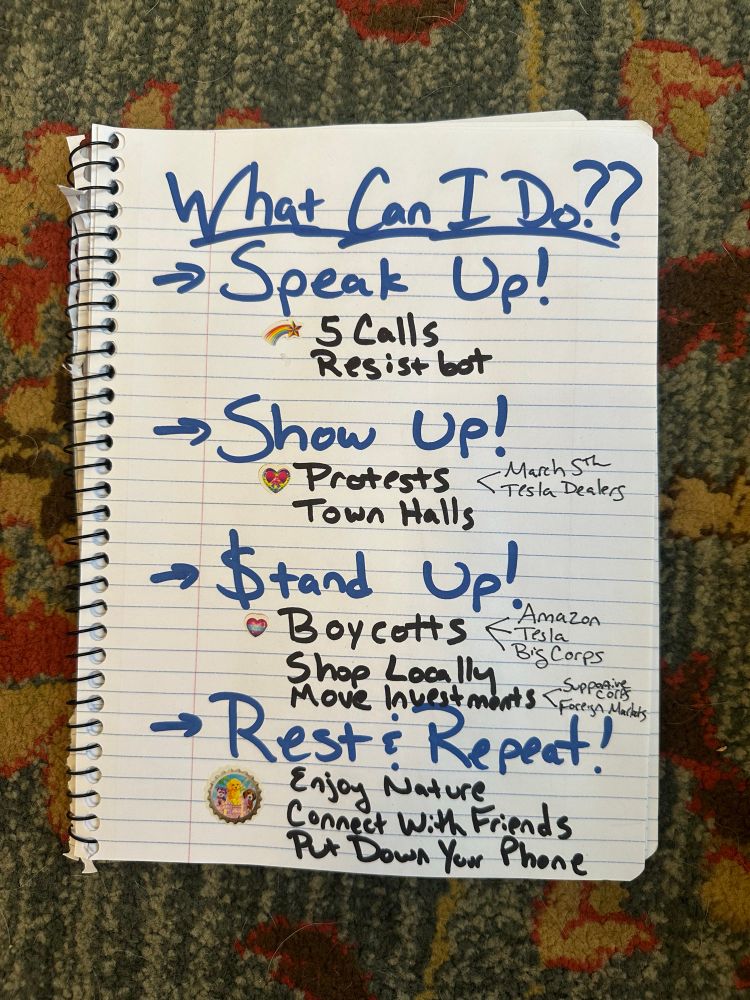 What Can I Do??
→ Speak Up!
5 Calls
Resist bot
→ Show Up!
Protests
March 5th
Tesla Dealers
Town Halls
→ $tand Up!
Boycotts
Amazon
Tesla
Big Corps
Shop Locally
Move Investments
Supportive
Corps
Foreign Markets
→ Rest & Repeat!
Enjoy Nature
Connect With Friends
Put Down Your Phone